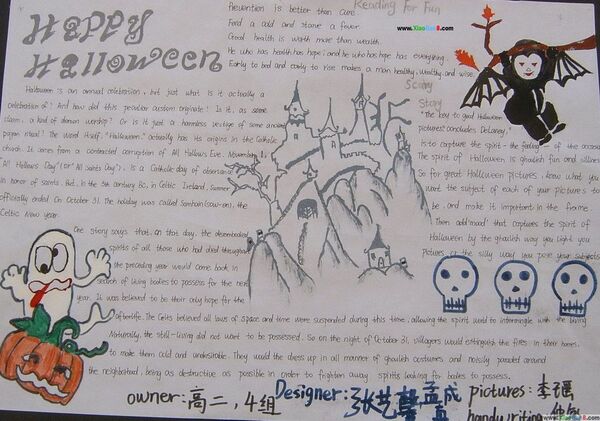 Happy
Halloween
Prevention is better than cure
Feed a cold and starve a fever.
Good health is worth more than wealth
He who has health has hope; and he who has hope has everything.
Early to bed and early to rise makes a man healthy, wealthy and wise.
Reading for Fun
www.XiaoBao8.com
Scary
Story
Halloween is an annual celebration, but just what is it actually a
celebration of? And how did this peculiar custom originate? Is it, as some
claim, a kind of demon worship? Or is it just a harmless vestige of some ancient
pagan ritual? The word itself, "Halloween," actually has its origins in the Catholic
church. It comes from a contracted corruption of All Hallows Eve. November 1,
"All Hallows Day" (or "All Saints Day"), is a Catholic day of observance
in honor of saints. But, in the 5th century BC, in Celtic Ireland, summer
officially ended on October 31. The holiday was called Samhain (sow-en), the
Celtic New year.
One story says that, on that day, the disembodied
spirits of all those who had died throughout
the preceding year would come back in
search of living bodies to possess for the next
year. It was believed to be their only hope for the
afterlife. The Celts believed all laws of space and time were suspended during this time, allowing the spirit world to intermingle with the living
Naturally, the still-living did not want to be possessed. So on the night of October 31, villagers would extinguish the fires in their homes,
to make them cold and undesirable. They would the dress up in all manner of ghoulish costumes and noisily paraded around
the neighborhood, being as destructive as possible in order to frighten away spirits looking for bodies to possess.
"The key to good Halloween
pictures," concludes DeLaney,
"is to capture the spirit - the feeling - of the occasion
The spirit of Halloween is ghoulish fun and silliness
So for great Halloween pictures, know what you
want the subject of each of your pictures to
be and make it important in the frame.
Then add 'mood' that captures the spirit of
Halloween by the ghoulish way you light your
pictures or the silly way you pose your subjects.
owner: 高二，4组
Designer: 张艺馨 孟成
pictures: 李瑶
handwriting: